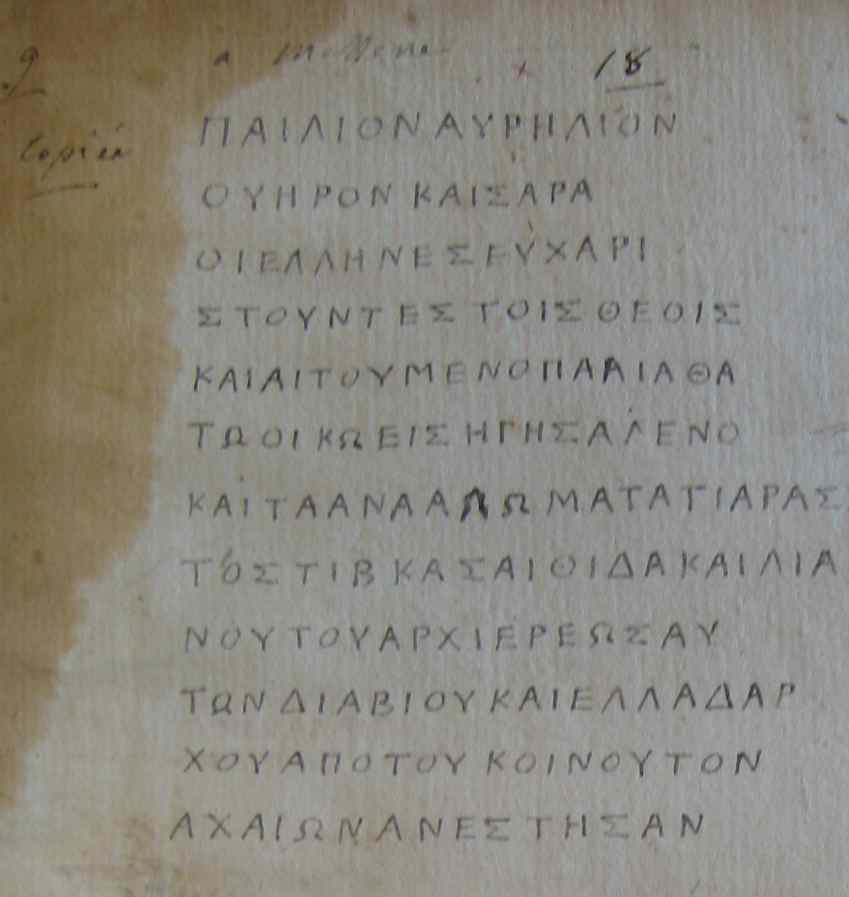 9 a Methene 18
copiée
ΠΑΙΛΙΟΝΑΥΡΗΛΙΟΝ
ΟΥΗΡΟΝΚΑΙΣΑΡΑ
ΟΙΕΛΛΗΝΕΣΕΥΧΑΡΙ
ΣΤΟΥΝΤΕΣΤΟΙΣΘΕΟΙΣ
ΚΑΙΑΙΤΟΥΜΕΝΟΠΑΑΙΑΘΑ
ΤΩΟΙΚΩΕΙΣΗΓΗΣΑΛΕΝΟ
ΚΑΙΤΑΑΝΑΑΛΩΜΑΤΑΤΙΑΡΑΣ
ΤΟΣΤΙΒΚΑΣΑΙΘΙΔΑΚΑΙΛΙΑ
ΝΟΥΤΟΥΑΡΧΙΕΡΕΩΣΑΥ
ΤΩΝΔΙΑΒΙΟΥΚΑΙΕΛΛΑΔΑΡ
ΧΟΥΑΠΟΤΟΥΚΟΙΝΟΥΤΟΝ
ΑΧΑΙΩΝΑΝΕΣΤΗΣΑΝ